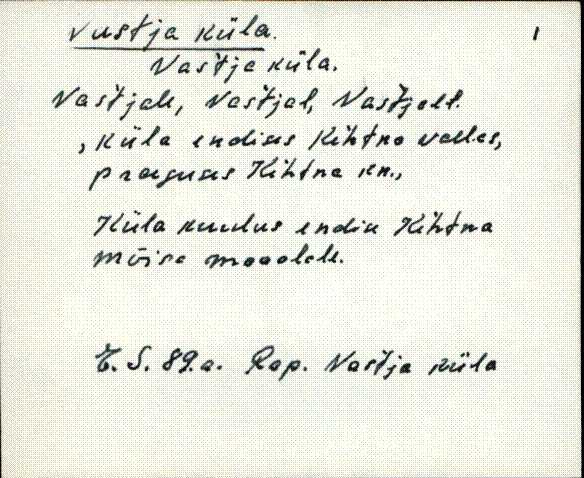 Vastja küla. 1
Vas̆tja küla.
Vas̆tjale, Vas̆tjal, Vas̆tjalt.
, küla endises Kehtna vallas,
praeguses Kehtna kn.,
Küla kuulus endise Kehtna
mõisa maadele.
E. S. 89.a. Rap. Vas̆tja küla